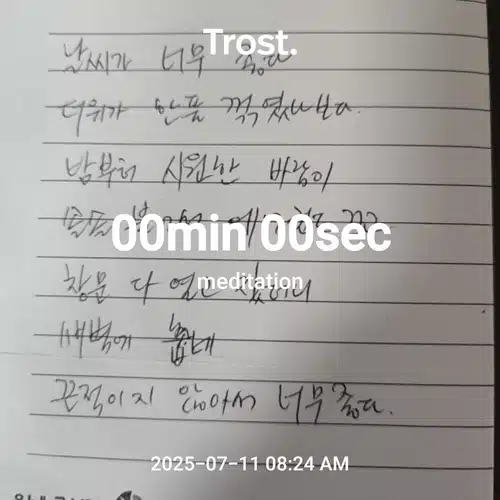 Trost.
날씨가 너무 좋다
더위가 한풀 꺾였나보다.
밤부터 시원한 바람이
솔솔
00min 00sec
창문 다 열고
meditation
새벽에 춥네
끈적이지 않아서 너무 좋다.
2025-07-11 08:24 AM